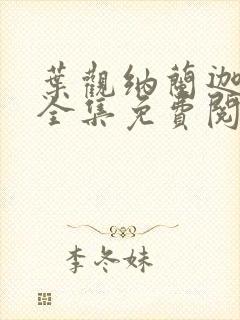 葉觀納蘭迦
全集免費閱
李冬妹